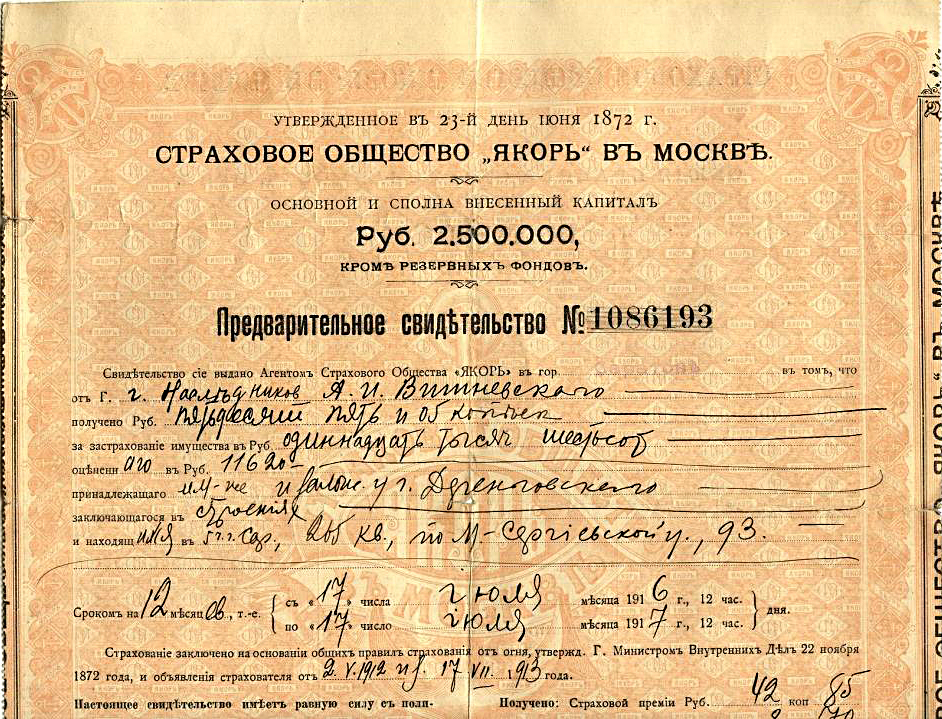 УТВЕРЖДЕННОЕ ВЪ 23-Й ДЕНЬ ІЮНЯ 1872 Г.
СТРАХОВОЕ ОБЩЕСТВО „ЯКОРЬ“ ВЪ МОСКВѢ.
ОСНОВНОЙ И СПОЛНА ВНЕСЕННЫЙ КАПИТАЛЪ
Руб. 2.500.000,
КРОМѢ РЕЗЕРВНЫХЪ ФОНДОВЪ.
Предварительное свидѣтельство № 1086193
Свидѣтельство сіе выдано Агентомъ Страхового Общества «ЯКОРЬ» въ гор. въ томъ, что
отъ Г. г. Наслѣдников А. И. Витневского
получено Руб. пятьдесят пять и 06 копѣек
за застрахованіе имущества въ Руб. одиннадцать тысяч шестьсот
оцѣненнаго въ Руб. 11620
принадлежащаго и г.
заключающагося въ строеніях
и находящ въ кв., по М-Сергіевской у., 93.
Срокомъ на 12 мѣсяцов, т.-е. съ «17» числа іюля мѣсяца 1916 г., 12 час.
по «17» число іюля мѣсяца 1917 г., 12 час. дня.
Страхованіе заключено на основаніи общихъ правилъ страхованія отъ огня, утвержд. Г. Министромъ Внутреннихъ Дѣлъ 22 ноября
1872 года, и объявленія страхователя отъ 2. V. 1912 17 VII 1913 года.
Настоящее свидѣтельство имѣетъ равную силу съ поли-
Получено: Страховой преміи Руб. 42 коп 85